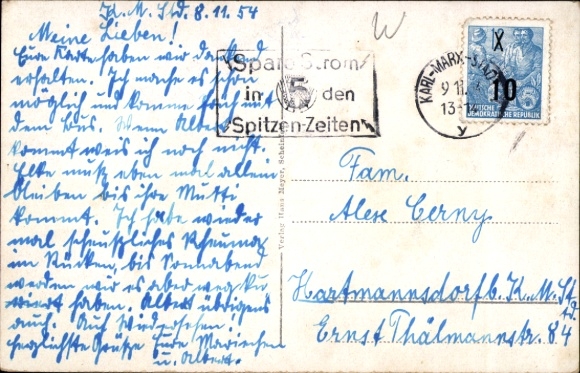 K. M. Std. 8.11.54
Meine Lieben!
Eure Karte haben wir dankend
erhalten. Ich mache es schon
möglich und komme früh mit
dem Bus. Wenn Albert
kommt weis ich noch nicht.
Elke muß eben mal allein
bleiben bis ihre Mutti
kommt. Ich habe wieder
mal scheußliches Rheuma
im Rücken, bis Sonnabend
werden wir es aber weg ku-
riert haben. Albert übrigens
auch. Auf Wiedersehen!!
herzlichste Grüße Eure Mariechen
u. Albert.
Spare Strom
in 5 den
Spitzen-Zeiten
W
KARL-MARX-STADT
9.11.
13
y
X
10
DEUTSCHE
DEMOKRATISCHE REPUBLIK
Verlag Hans Meyer,
Fam.
Alex Cerny
Hartmannsdorf b. K. M. St
d.
Ernst Thälmannstr. 84